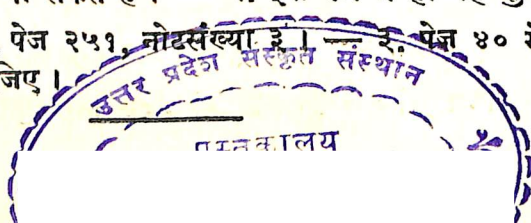 पेज २५१, नोटसंख्या इ । — इ. पेज ४०
जिए ।
उत्तर प्रदेश संस्कृत संस्थान
पुस्तकालय